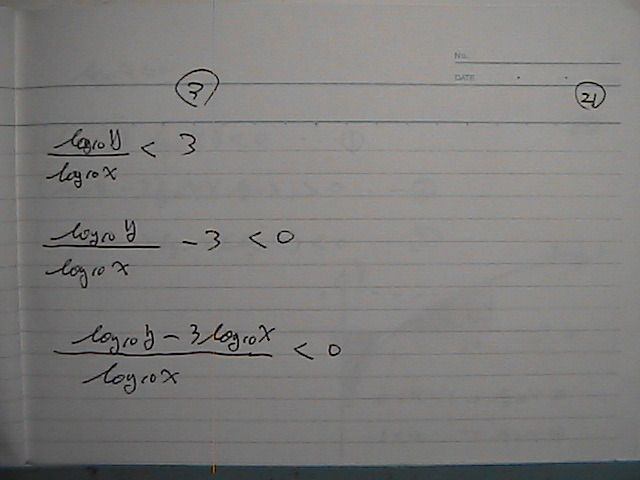 No.
DATE
? 21
log₁₀y / log₁₀x < 3
log₁₀y / log₁₀x - 3 < 0
log₁₀y - 3log₁₀x / log₁₀x < 0